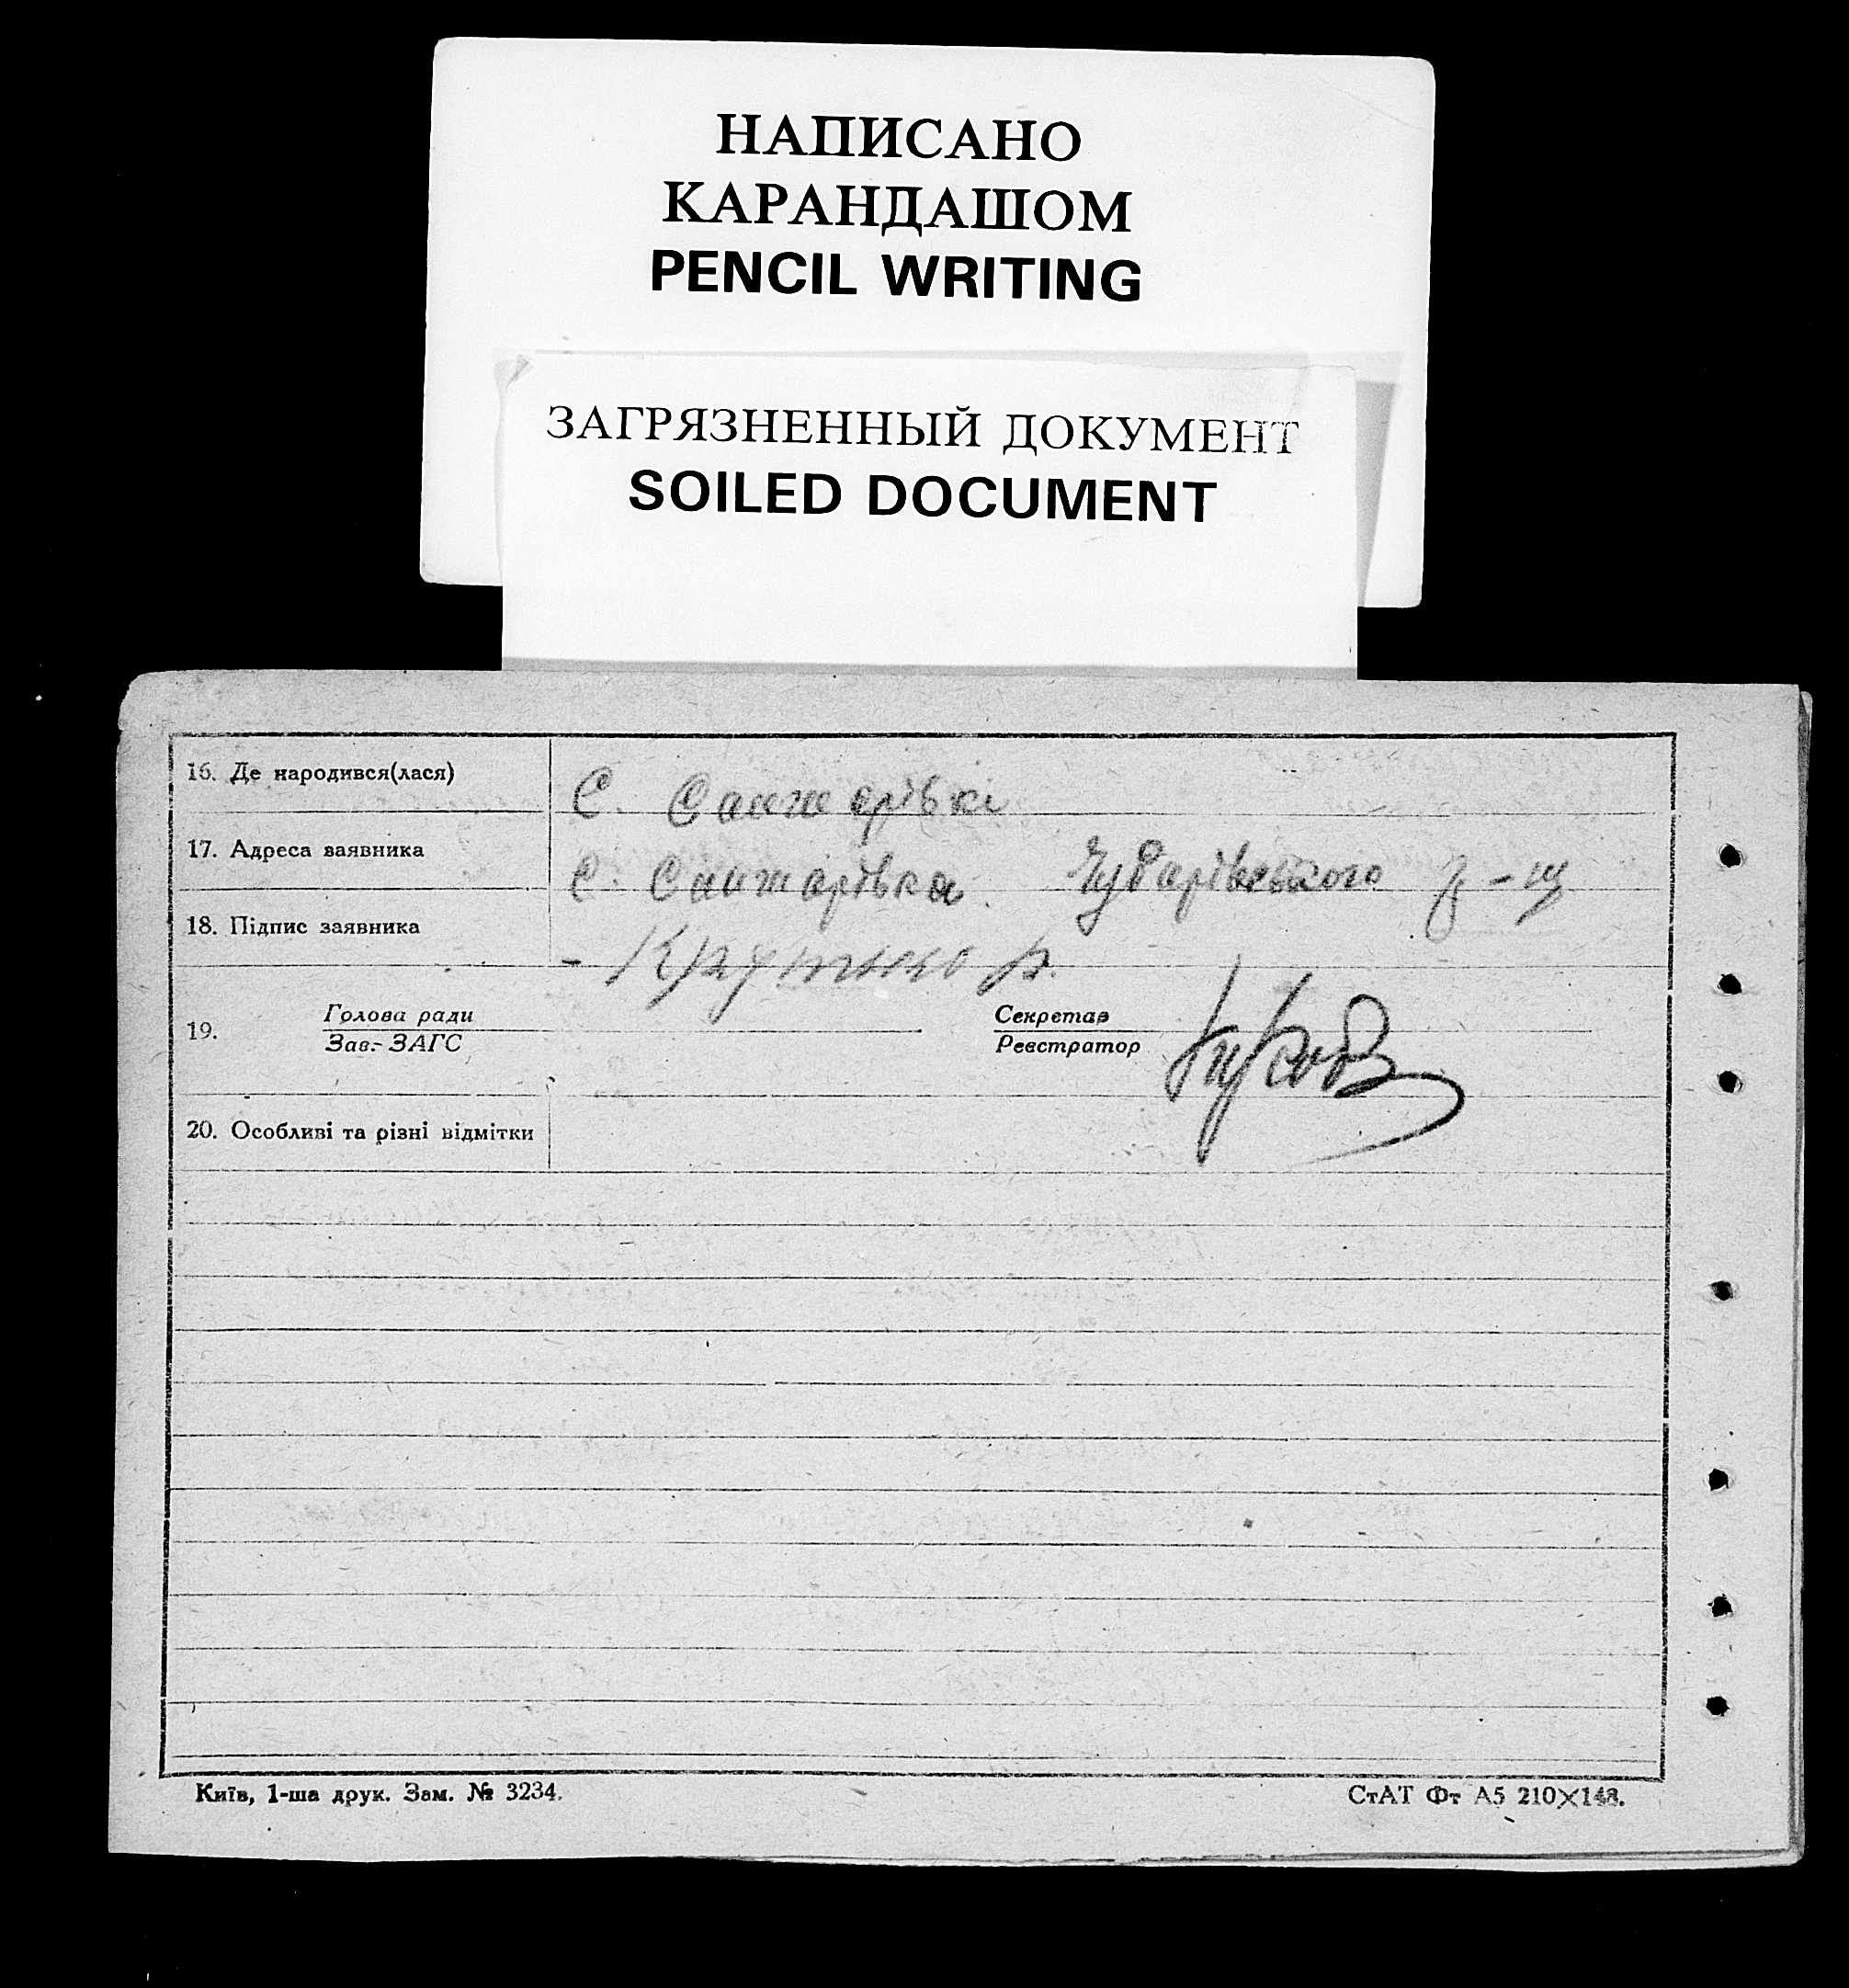 НАПИСАНО
КАРАНДАШОМ
PENCIL WRITING
ЗАГРЯЗНЕННЫЙ ДОКУМЕНТ
SOILED DOCUMENT
16. Де народився(лася) С. Санжарівкі
17. Адреса заявника С. Санжарівка. Чубарівського
18. Підпис заявника
Голова ради Секретар
19.
Зав. ЗАГС Реєстратор
20. Особливі та різні відмітки
Київ, 1-ша друк. Зам. № 3234. СтАТ Фт А5 210×148.